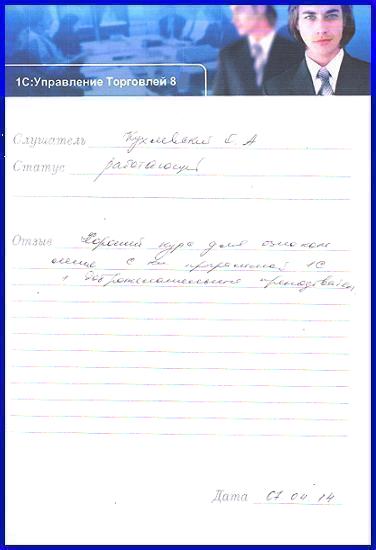 1С:Управление Торговлей 8
Слушатель Кухлевский С. А
Статус работающий
Отзыв Хороший курс для ознаком
ления с программой 1С
+ доброжелательный преподаватель
Дата 07 04 14